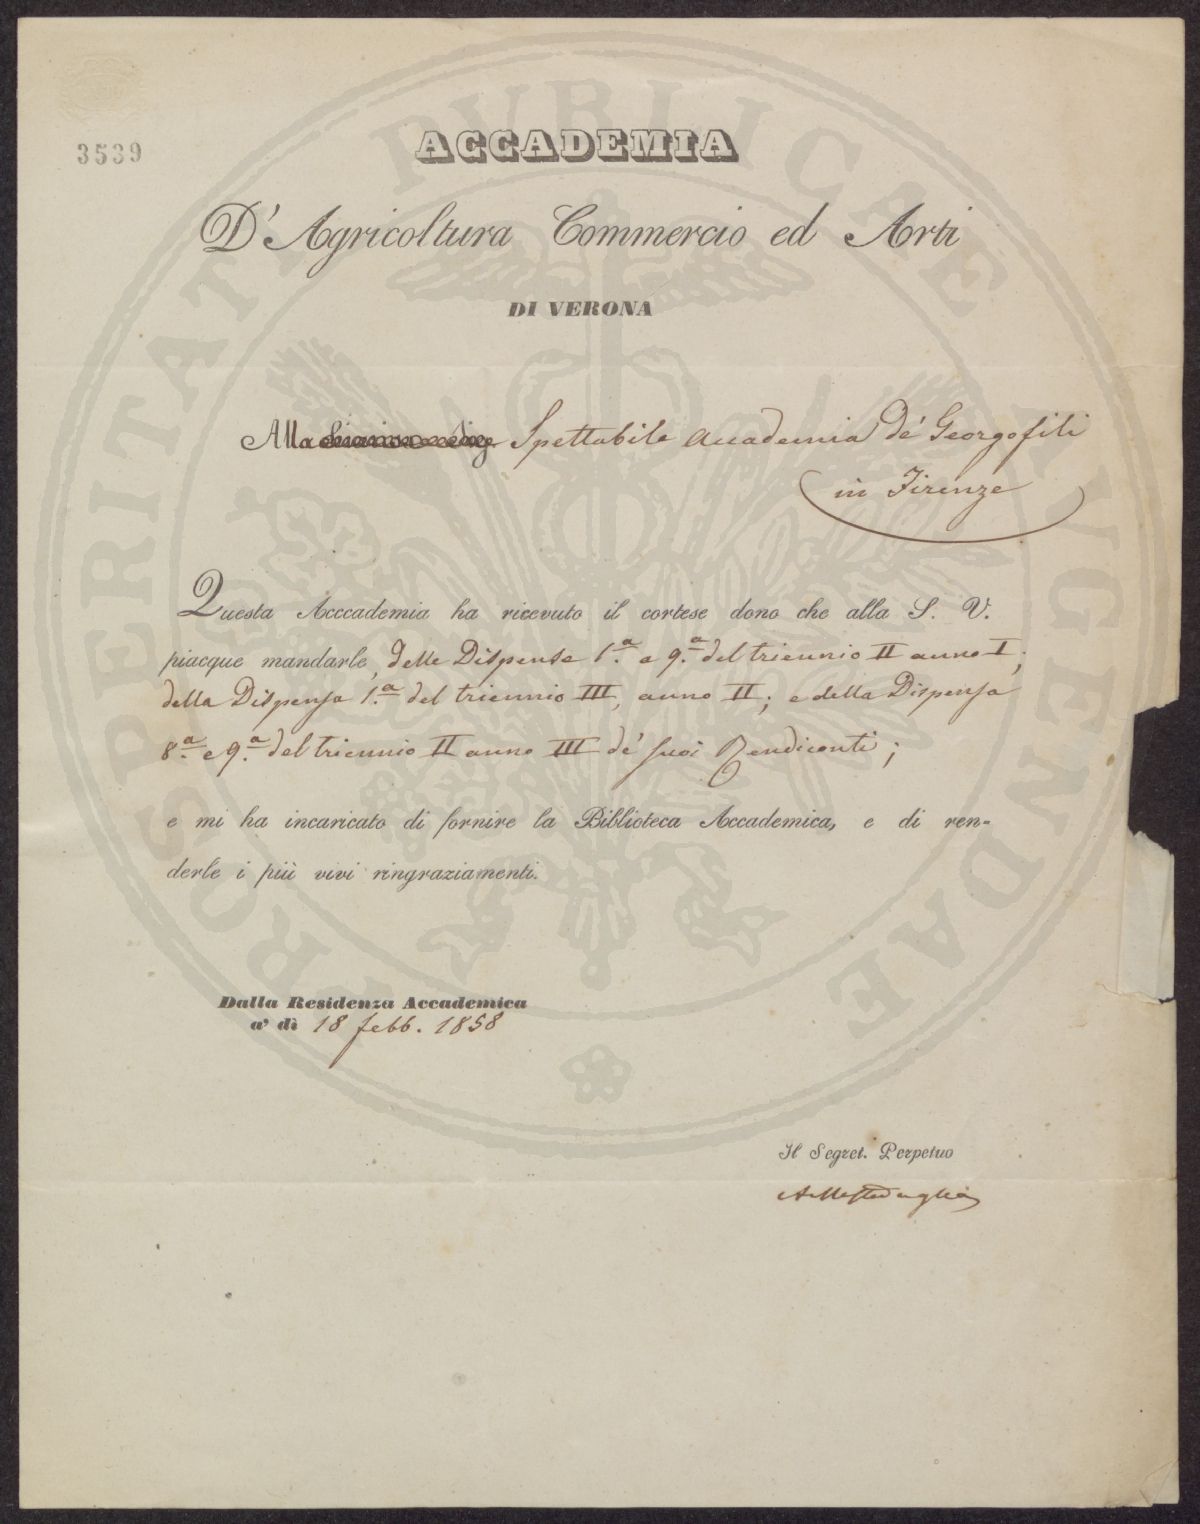 3539
ACCADEMIA
D'Agricoltura Commercio ed Arti
DI VERONA
Alla Spettabile Accademia de' Georgofili
in Firenze
Questa Acccademia ha ricevuto il cortese dono che alla S. V.
piacque mandarle, delle Dispense 1.ª e 9.ª del triennio II anno I;
della Dispensa 1.ª del triennio III, anno II; e della Dispensa
8.ª e 9.ª del triennio II anno III de' suoi Rendiconti;
e mi ha incaricato di fornire la Biblioteca Accademica, e di ren-
derle i più vivi ringraziamenti.
Dalla Residenza Accademica
a' dì 18 febb. 1858
Il Segret. Perpetuo
AMessedaglia
PROSPERITATI PUBLICAE AUGENDAE